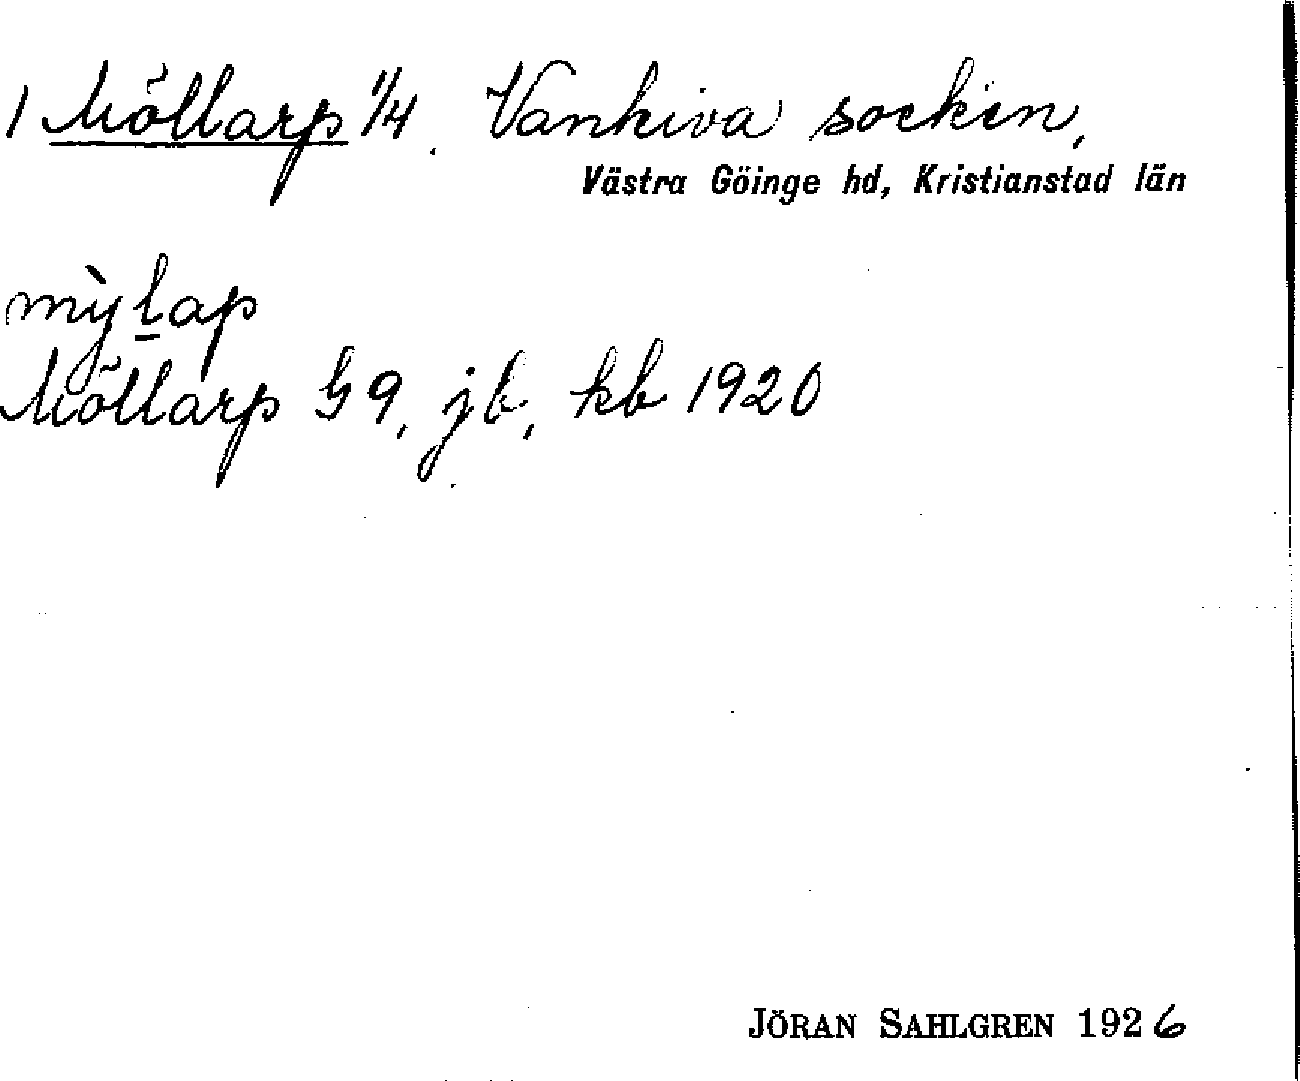 1 Möllarp 1/4. Vankiva socken,
Västra Göinge hd, Kristianstad län
mỳlap
Möllarp G 9, jb, kb 1920
JÖRAN SAHLGREN 1926